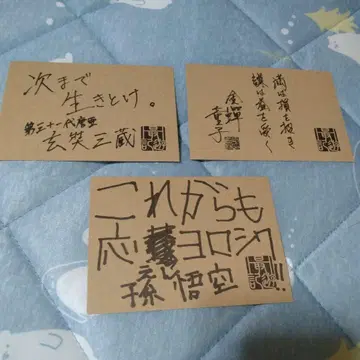 次まで
生きとけ。
第三十一代唐亜
玄奘三蔵
満は損を招き
謙は益を受く
金蟬
童子
これからも
応援ヨロシク!!
孫悟空